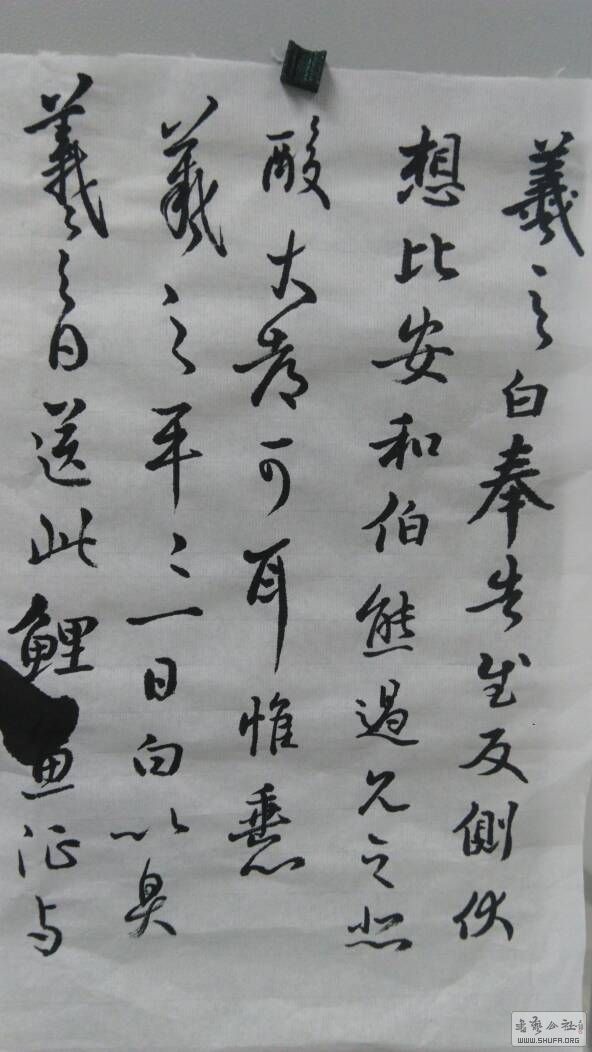 羲之白奉告慰反側伏
想比安和伯熊過见之悲
酸大都可耳惟
羲之平之三日白以具
羲之日送此鯉魚征与
書藝公社
WWW.SHUFA.ORG